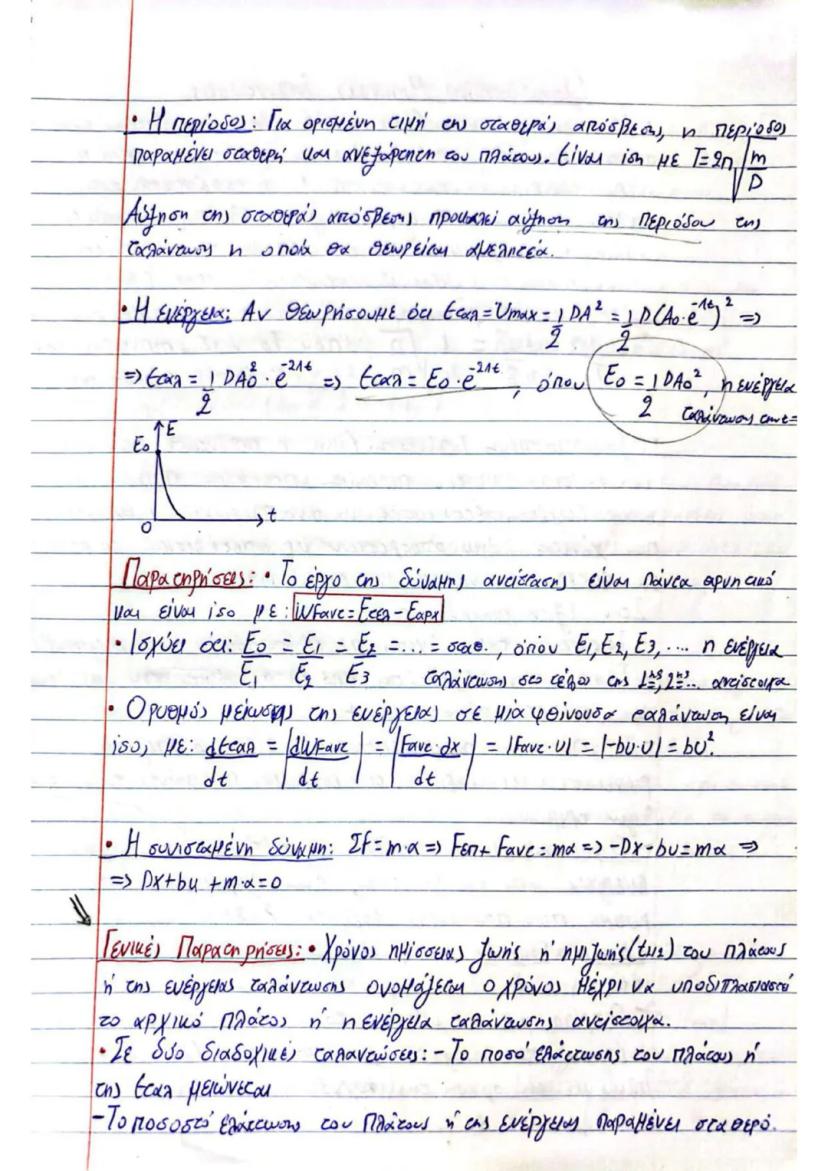 • Η περίοδος: Για ορισμένη τιμή της σταθεράς απόσβεσης, η περίοδος
παραμένει σταθερή και ανεξάρτητη του πλάτους. Είναι ίση με T=2π√(m/D)
Αύξηση της σταθεράς απόσβεσης προκαλεί αύξηση της περιόδου της
ταλάντωσης η οποία θα θεωρείται αμελητέα.
• Η ενέργεια: Αν θεωρήσουμε ότι Εταλ=Umax=1/2 DA²=1/2 D(A₀·e^-Λt)² =>
=> Εταλ=1/2 DA₀²·e^-2Λt => Εταλ=E₀·e^-2Λt, όπου E₀=1/2 DA₀², η ενέργεια
ταλάντωσης την t=
E₀ E
0 t
Παρατηρήσεις: • Το έργο της δύναμης αντίστασης είναι πάντα αρνητικό
και είναι ίσο με: WFαντ=Eτελ-Eαρχ
• Ισχύει ότι: E₀/E₁ = E₁/E₂ = E₂/E₃ =...= σταθ., όπου E₁,E₂,E₃,... η ενέργεια
ταλάντωσης στο τέλος της 1ης, 2ης... αντίστοιχα
• Ο ρυθμός μείωσης της ενέργειας σε μία φθίνουσα ταλάντωση είναι
ίσος με: dEταλ/dt = |dWFαντ/dt| = |Fαντ·dx/dt| = |Fαντ·υ| = |-bυ·υ| = bυ².
• Η συνισταμένη δύναμη: ΣF=m·α => Fεπ+Fαντ=mα => -Dx-bυ=mα =>
=> Dx+bυ+m·α=0
Γενικές Παρατηρήσεις: • Χρόνος ημίσειας ζωής ή ημιζωής(t1/2) του πλάτους
ή της ενέργειας ταλάντωσης ονομάζεται ο χρόνος μέχρι να υποδιπλασιαστεί
το αρχικό πλάτος ή η ενέργεια ταλάντωσης αντίστοιχα.
• Σε δύο διαδοχικές ταλαντώσεις: - Το ποσό ελάττωσης του πλάτους ή
της Εταλ μειώνεται
- Το ποσοστό ελάττωσης του πλάτους ή της ενέργειας παραμένει σταθερό.